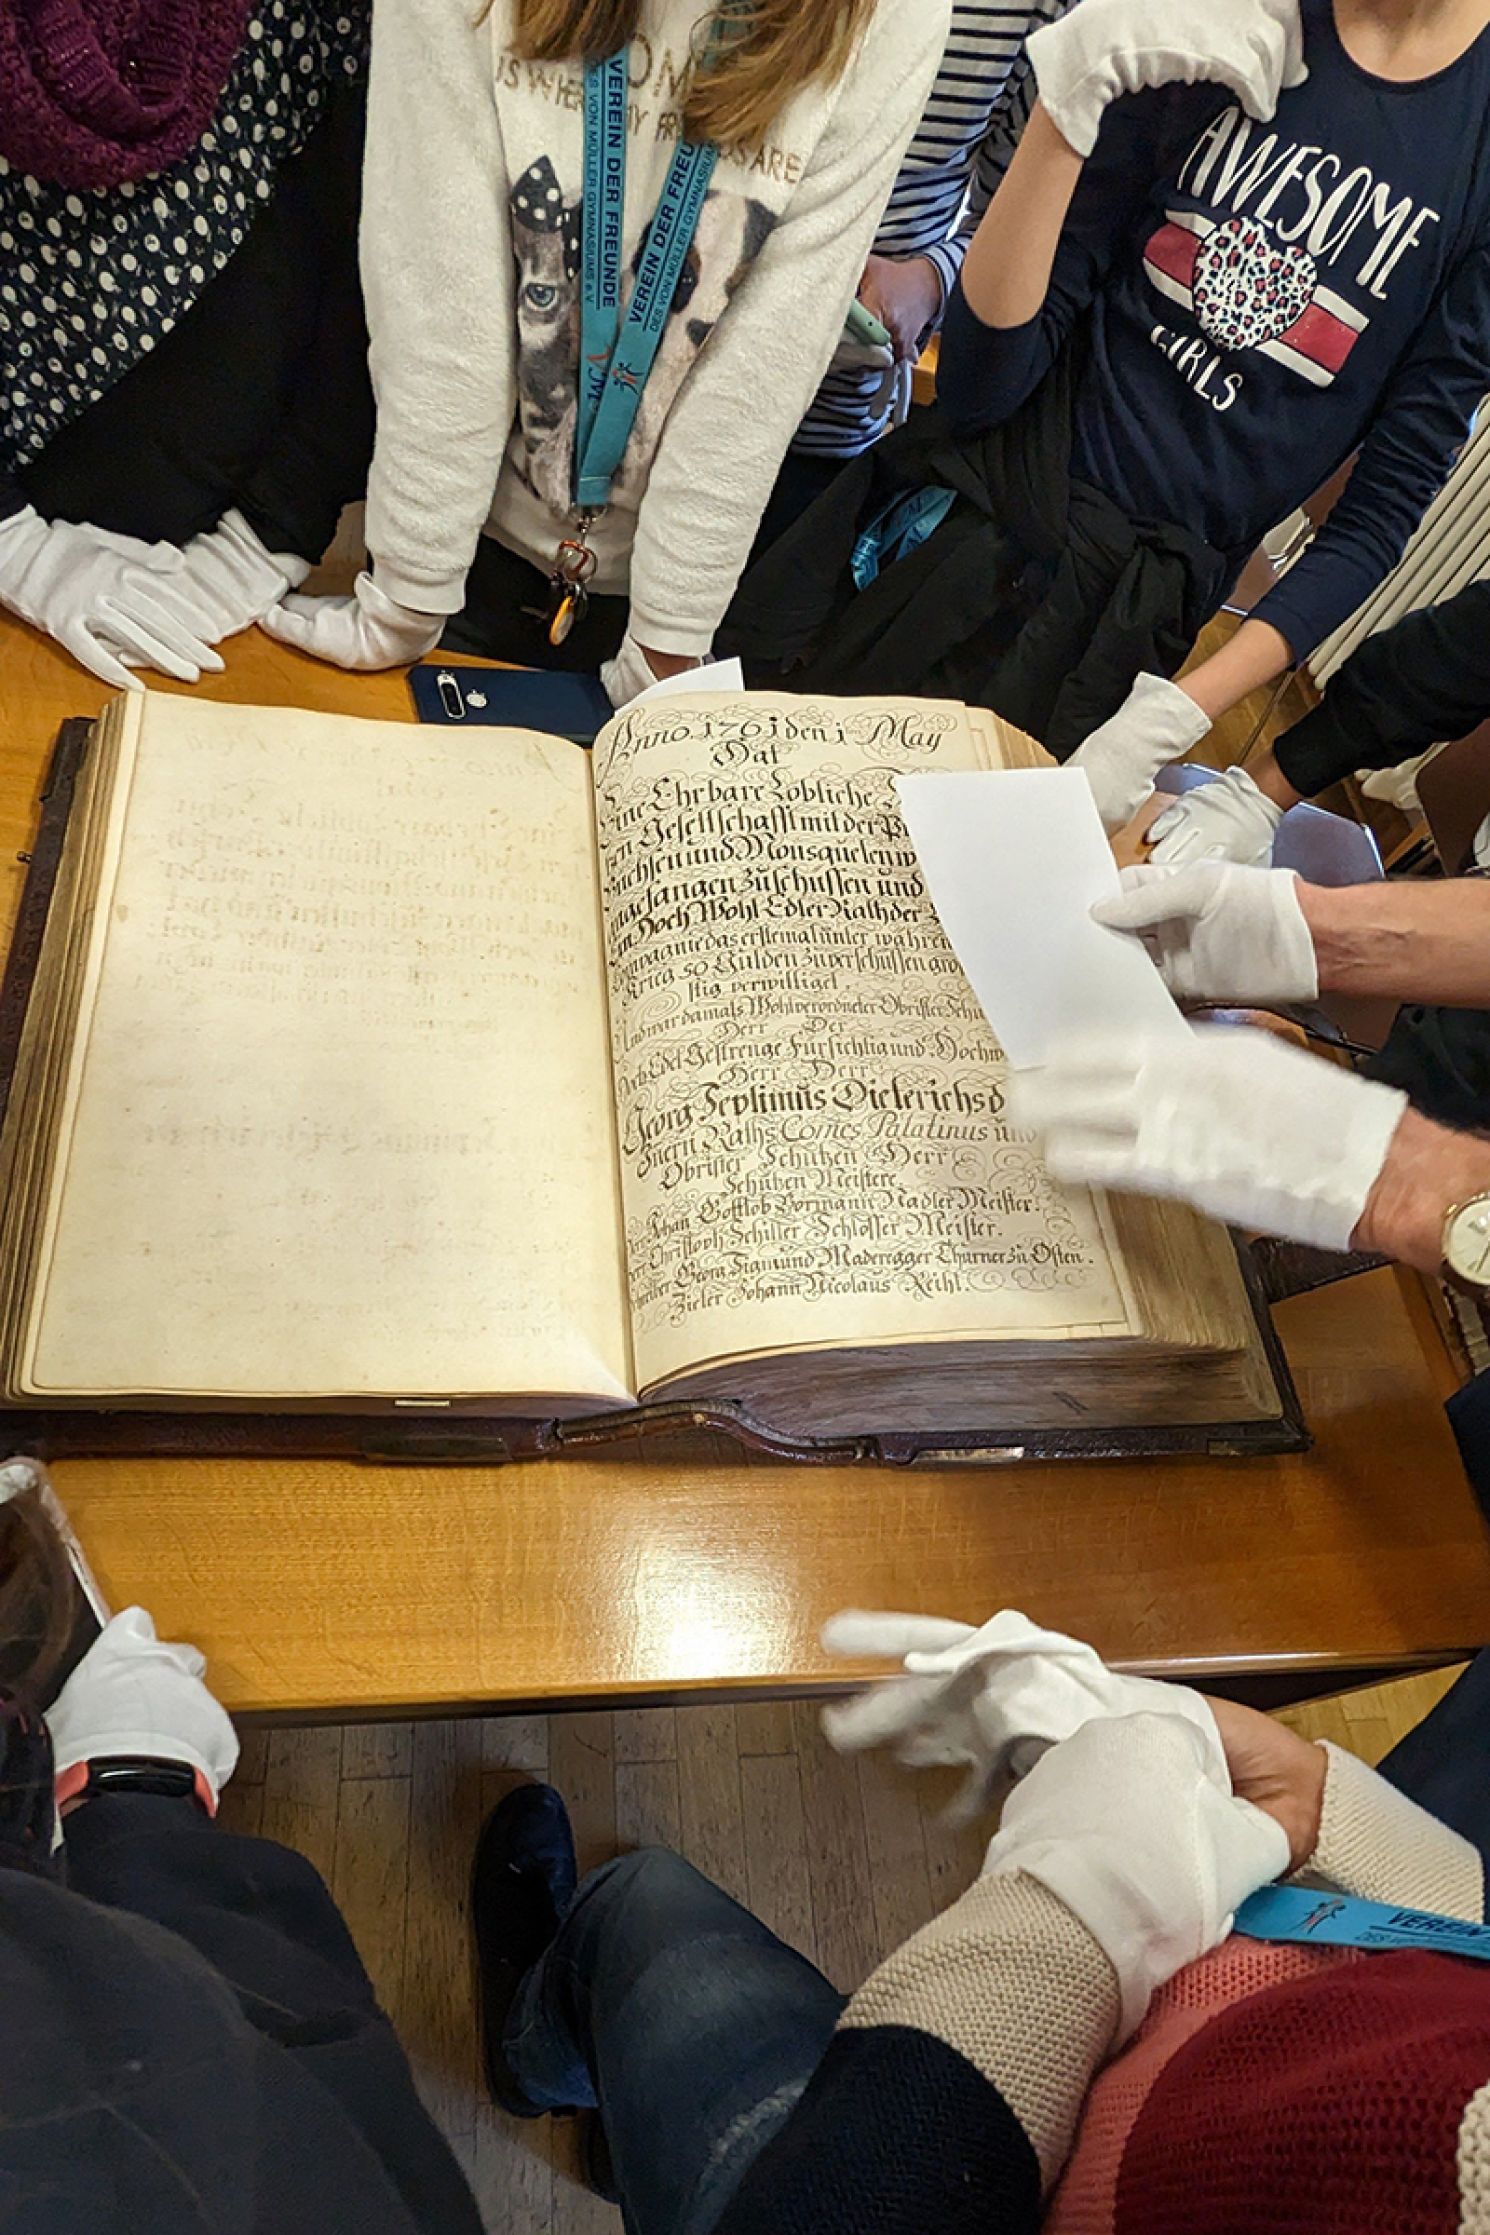 VEREIN DER FREUNDE
DES VON MÜLLER GYMNASIUMS e.V.
VEREIN DER FREU
DES VON MÜLLER GYMNASIUM
AWESOME
GIRLS
Anno 1761 den 1 May
Hat
Eine Ehrbare Löbliche
Gesellschafft mit der
und Mousqueten
Zuschüssen und
Hoch Wohl Edler Rath der
Compagnie das erstemal unter währen
Krieg 50 Gulden zuverschüssen gro
stig verwilliget.
Und war damals Wohlverordneter Obrister Schü
Herr Der
Edel Gestrenge Fürsichtig und Hochw
Herr Herr
Georg Septimus Dieterichs d
Jnern Raths Comes Palatinus und
Obrister Schützen Herr
Schützen Meistere
Johan Gottlob Bormann Nadler Meister.
Christoph Schiller Schlosser Meister.
Georg Sigmund Maderegger Thurner zu Osten.
Zieler Johann Nicolaus Reihl.
VEREIN